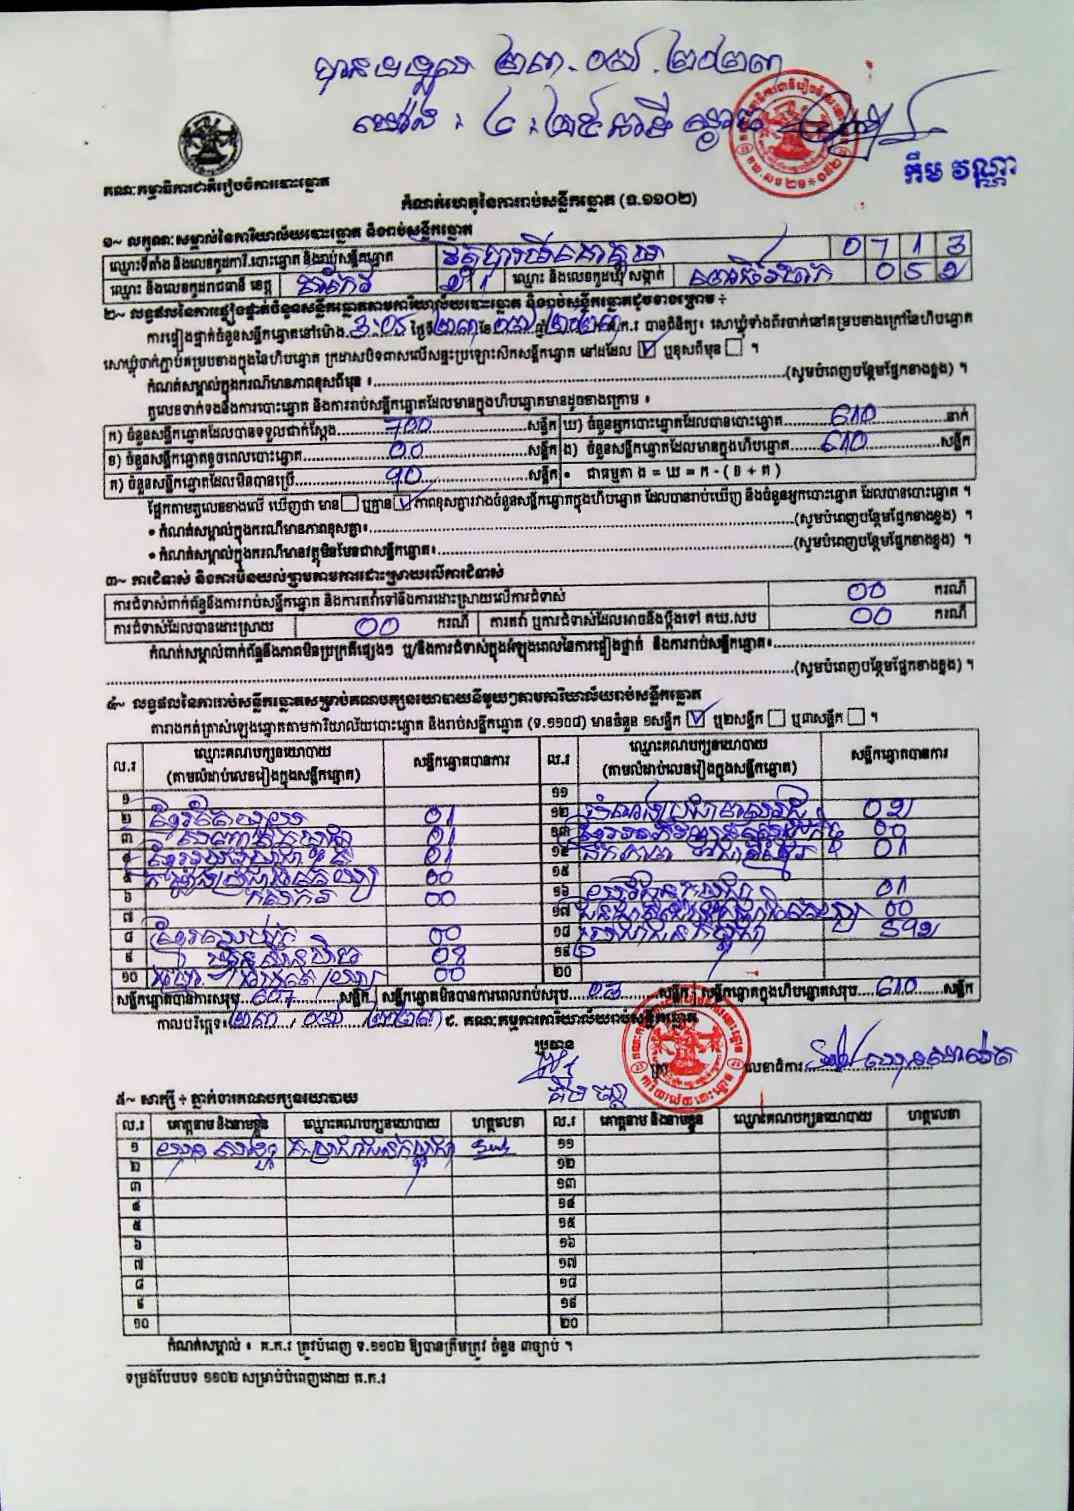 បានទទួល ២៣.០៧.២០២៣
ម៉ោង : ៤:២៥នាទី ល្ងាច
គឹម វណ្ណា
គណៈកម្មាធិការជាតិរៀបចំការបោះឆ្នោត
កំណត់ហេតុនៃការរាប់សន្លឹកឆ្នោត (ទ.១១០២)
១~ លក្ខណៈសម្គាល់នៃការិយាល័យបោះឆ្នោត និងរាប់សន្លឹកឆ្នោត
ឈ្មោះទីតាំង និងលេខកូដការិ.បោះឆ្នោត និងរាប់សន្លឹកឆ្នោត 0713
ឈ្មោះ និងលេខកូដរាជធានី ខេត្ត តាកែវ 21 ឈ្មោះ និងលេខកូដឃុំ សង្កាត់ 052
២~ លទ្ធផលនៃការផ្ទៀងផ្ទាត់ចំនួនសន្លឹកឆ្នោតតាមការិយាល័យបោះឆ្នោត និងរាប់សន្លឹកឆ្នោតដូចខាងក្រោម ÷
ការផ្ទៀងផ្ទាត់ចំនួនសន្លឹកឆ្នោតនៅម៉ោង 3:05 ថ្ងៃទី ២៣ ខែ ០៧ ឆ្នាំ ២០២៣ គ.ក.រ បានពិនិត្យ ៖ សោឃ្មុំទាំងពីរចាក់នៅគម្របខាងក្រៅនៃហិបឆ្នោត
សោឃ្មុំចាក់ភ្ជាប់គម្របខាងក្នុងនៃហិបឆ្នោត ក្រដាសបិទពាសលើសន្ទះប្រឡោះសឹកសន្លឹកឆ្នោត នៅដដែល ☑ ឬខុសពីមុន ☐ ។
កំណត់សម្គាល់ក្នុងករណីមានភាពខុសពីមុន ៖ (សូមបំពេញបន្ថែមផ្នែកខាងខ្នង) ។
តួលេខទាក់ទងនឹងការបោះឆ្នោត និងការរាប់សន្លឹកឆ្នោតដែលមានក្នុងហិបឆ្នោតមានដូចខាងក្រោម ៖
ក) ចំនួនសន្លឹកឆ្នោតដែលបានទទួលជាក់ស្តែង 700 សន្លឹក ឃ) ចំនួនអ្នកបោះឆ្នោតដែលបានបោះឆ្នោត 610 នាក់
ខ) ចំនួនសន្លឹកឆ្នោតខូចពេលបោះឆ្នោត 00 សន្លឹក ង) ចំនួនសន្លឹកឆ្នោតដែលមានក្នុងហិបឆ្នោត 610 សន្លឹក
គ) ចំនួនសន្លឹកឆ្នោតដែលមិនបានប្រើ 90 សន្លឹក • ជាធម្មតា ង = ឃ = ក - ( ខ + គ )
ផ្អែកតាមតួលេខខាងលើ ឃើញថា មាន ☐ ឬគ្មាន ☑ ភាពខុសគ្នារវាងចំនួនសន្លឹកឆ្នោតក្នុងហិបឆ្នោត ដែលបានរាប់ឃើញ និងចំនួនអ្នកបោះឆ្នោត ដែលបានបោះឆ្នោត ។
• កំណត់សម្គាល់ក្នុងករណីមានភាពខុសគ្នា៖ (សូមបំពេញបន្ថែមផ្នែកខាងខ្នង) ។
• កំណត់សម្គាល់ក្នុងករណីមានវត្ថុមិនមែនជាសន្លឹកឆ្នោត៖ (សូមបំពេញបន្ថែមផ្នែកខាងខ្នង) ។
៣~ ការជំទាស់ និងការមិនយល់ព្រមតាមការដោះស្រាយលើការជំទាស់
ការជំទាស់ពាក់ព័ន្ធនឹងការរាប់សន្លឹកឆ្នោត និងការតវ៉ាទៅនឹងការដោះស្រាយលើការជំទាស់ 00 ករណី
ការជំទាស់ដែលបានដោះស្រាយ 00 ករណី ការតវ៉ា ឬការជំទាស់ដែលអាចនឹងប្តឹងទៅ គឃ.សប 00 ករណី
កំណត់សម្គាល់ពាក់ព័ន្ធនឹងភាពមិនប្រក្រតីផ្សេងៗ ឬ/និងការជំទាស់ក្នុងអំឡុងពេលនៃការផ្ទៀងផ្ទាត់ និងការរាប់សន្លឹកឆ្នោត៖
(សូមបំពេញបន្ថែមផ្នែកខាងខ្នង) ។
៤~ លទ្ធផលនៃការរាប់សន្លឹកឆ្នោតសម្រាប់គណបក្សនយោបាយនីមួយៗតាមការិយាល័យរាប់សន្លឹកឆ្នោត
តារាងកត់ត្រាសំឡេងឆ្នោតតាមការិយាល័យបោះឆ្នោត និងរាប់សន្លឹកឆ្នោត (ទ.១១០៨) មានចំនួន ១សន្លឹក ☑ ឬ២សន្លឹក ☐ ឬ៣សន្លឹក ☐ ។
ល.រ ឈ្មោះគណបក្សនយោបាយ (តាមលំដាប់លេខរៀងក្នុងសន្លឹកឆ្នោត) សន្លឹកឆ្នោតបានការ ល.រ ឈ្មោះគណបក្សនយោបាយ (តាមលំដាប់លេខរៀងក្នុងសន្លឹកឆ្នោត) សន្លឹកឆ្នោតបានការ
១ ១១
២ 01 ១២ 02
៣ 01 ១៣ 00
៤ 01 ១៤ 01
៥ 00 ១៥
៦ កសិករ 00 ១៦ 01
៧ ១៧ 00
៨ 00 ១៨ ប្រជាជនកម្ពុជា 592
៩ ១៩
១០ 00 ២០
សន្លឹកឆ្នោតបានការសរុប 607 សន្លឹក សន្លឹកឆ្នោតមិនបានការពេលរាប់សរុប 03 សន្លឹក សន្លឹកឆ្នោតក្នុងហិបឆ្នោតសរុប 610 សន្លឹក
កាលបរិច្ឆេទ៖ ២៣ / ០៧ / ២០២៣ ៩. គណៈកម្មការការិយាល័យរាប់សន្លឹកឆ្នោត
ប្រធាន ត្រា លេខាធិការ
៥~ សាក្សី ÷ ភ្នាក់ងារគណបក្សនយោបាយ
ល.រ គោត្តនាម និងនាមខ្លួន ឈ្មោះគណបក្សនយោបាយ ហត្ថលេខា ល.រ គោត្តនាម និងនាមខ្លួន ឈ្មោះគណបក្សនយោបាយ ហត្ថលេខា
១ គ.ប្រជាជនកម្ពុជា ១១
២ ១២
៣ ១៣
៤ ១៤
៥ ១៥
៦ ១៦
៧ ១៧
៨ ១៨
៩ ១៩
១០ ២០
កំណត់សម្គាល់ ៖ គ.ក.រ ត្រូវបំពេញ ទ.១១០២ ឱ្យបានត្រឹមត្រូវ ចំនួន ៣ច្បាប់ ។
ទម្រង់បែបបទ ១១០២ សម្រាប់បំពេញដោយ គ.ក.រ